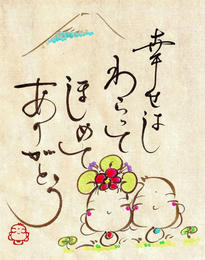 幸せはし
わらって
ほめて
ありがとう